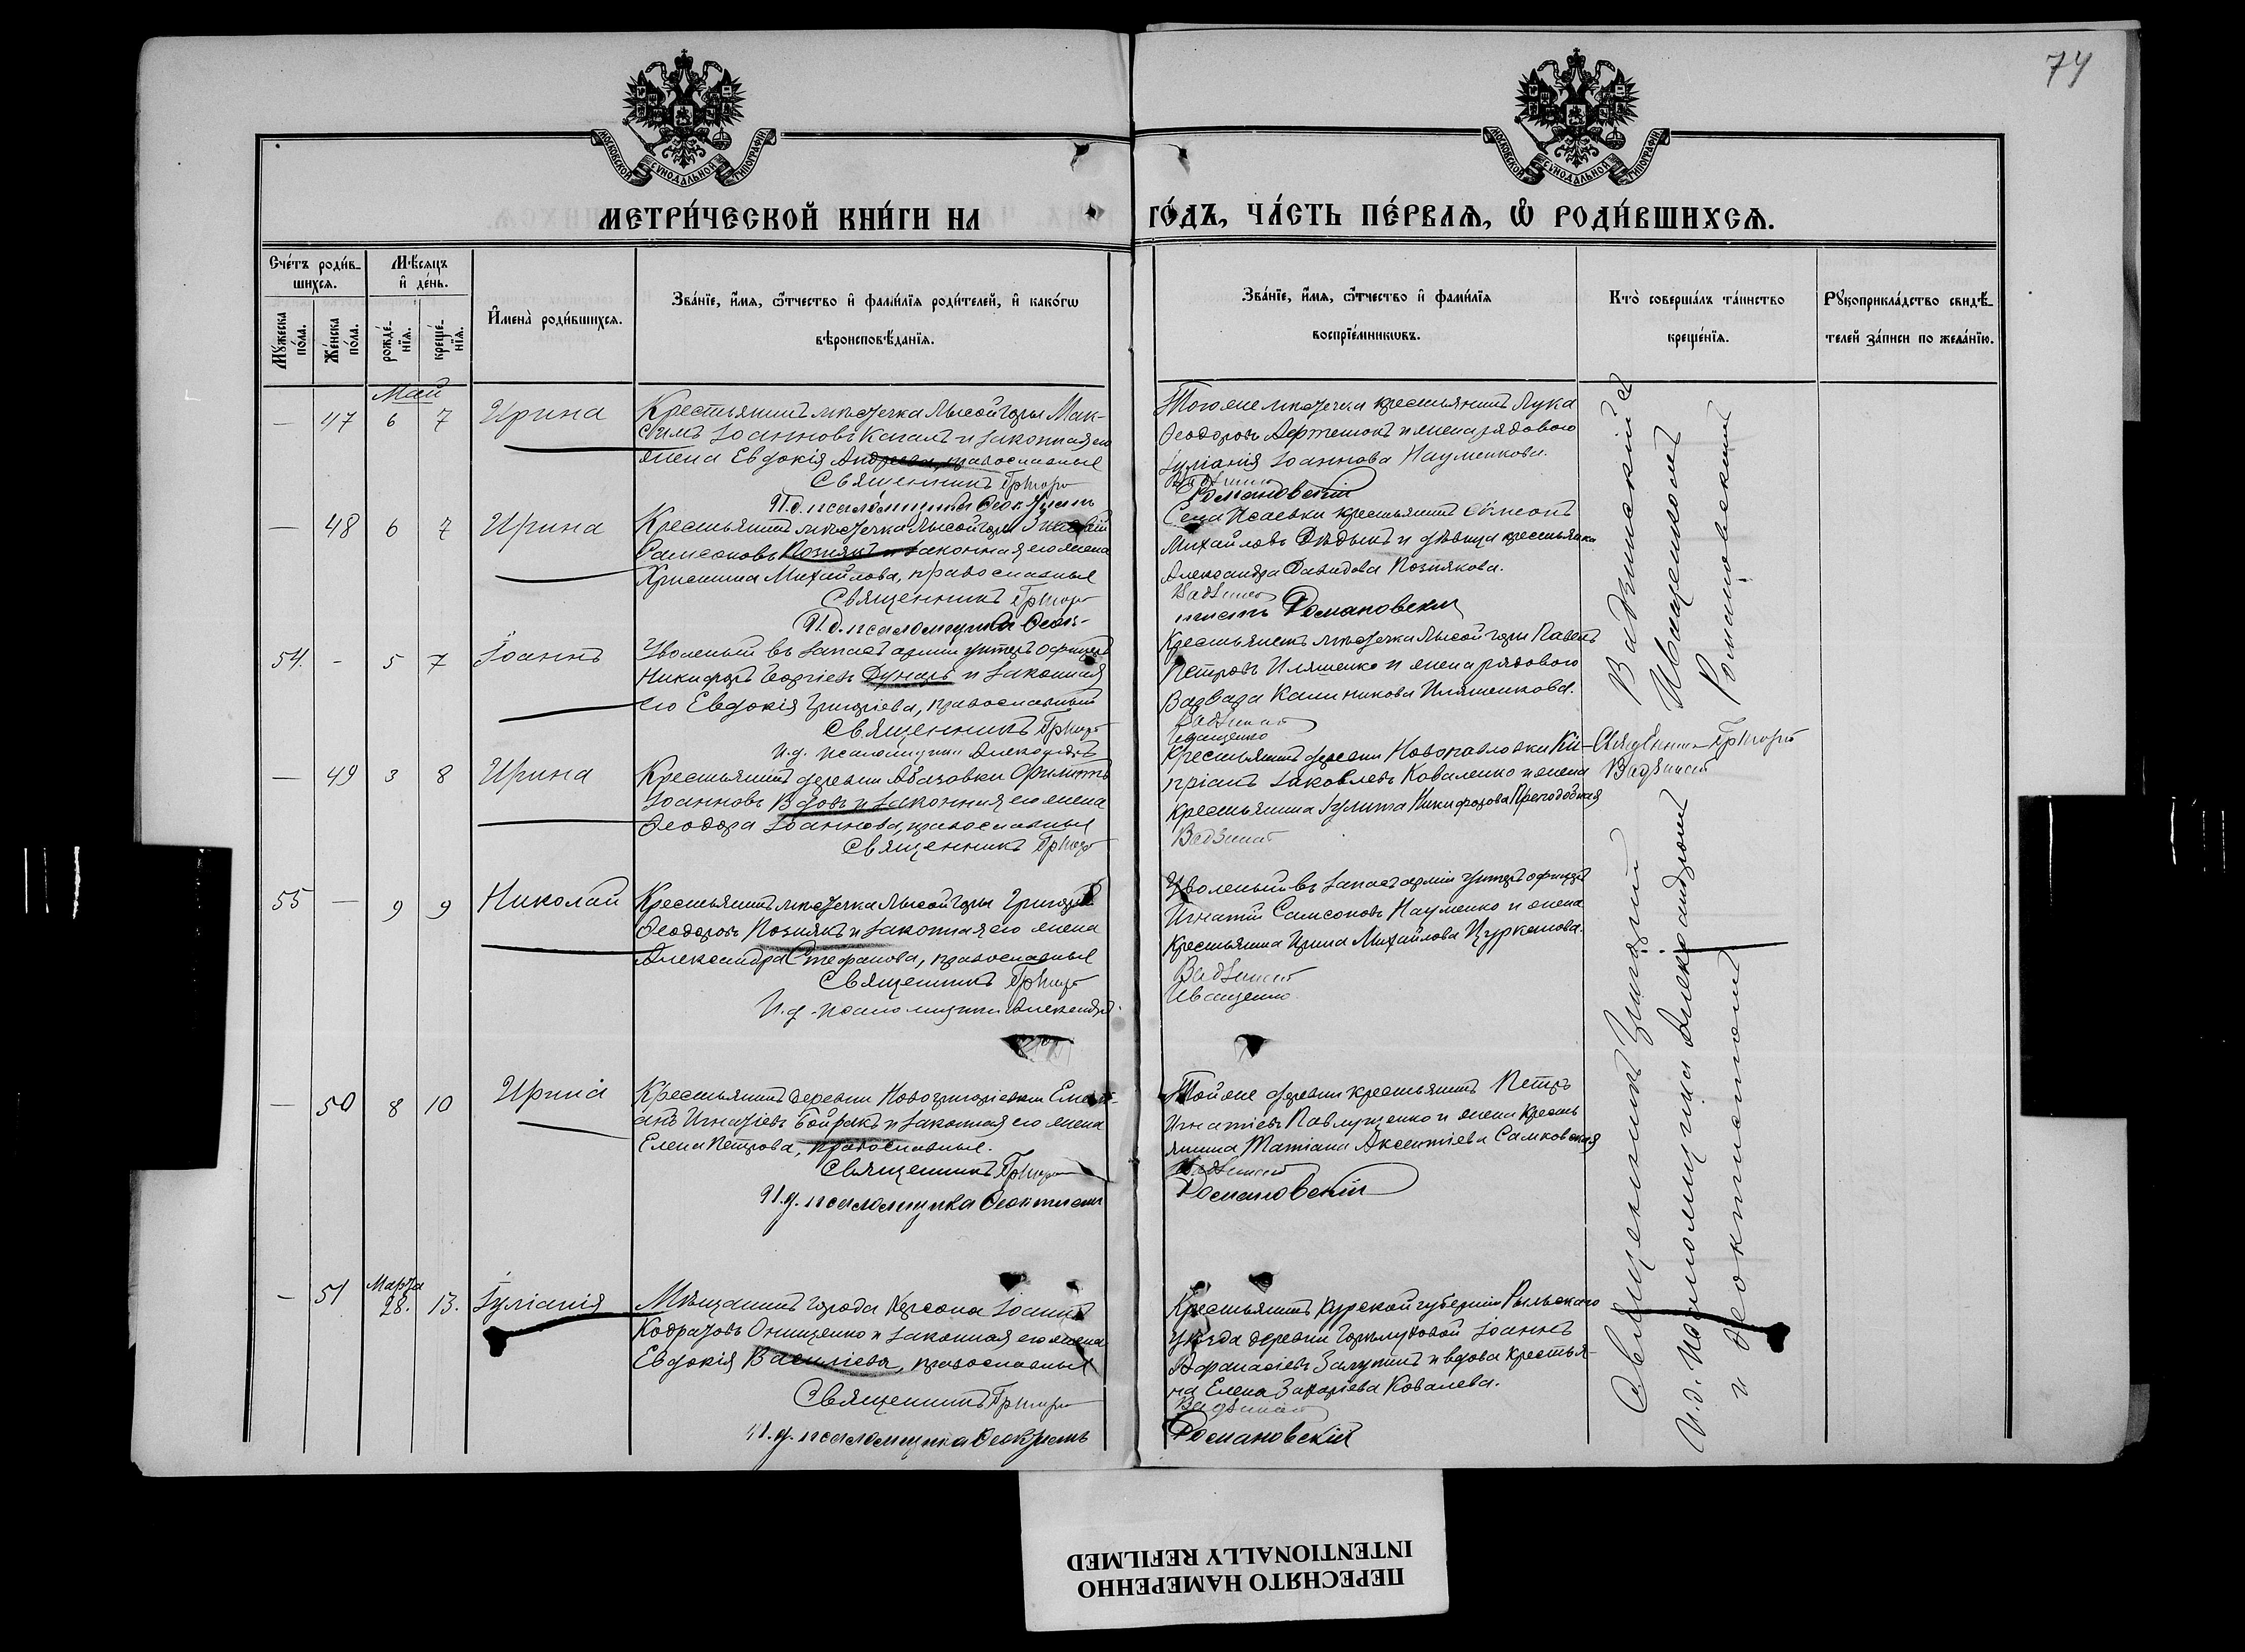 74
МОСКОВСКОЙ СѴНОДАЛЬНОЙ ТИПОГРАФІИ
МОСКОВСКОЙ СѴНОДАЛЬНОЙ ТИПОГРАФІИ
МЕТРИ́ЧЕСКОЙ КНИ́ГИ НА ГО́ДЪ, ЧА́СТЬ ПЕ́РВАѦ, Ѽ РОДИ́ВШИХСѦ.
Сче́тъ роди́вшихсѧ.
Мꙋжеска по́ла.
Же́нска по́ла.
Мѣ́сѧцъ и҆ де́нь.
рожде́нїѧ.
креще́нїѧ.
И҆мена̀ роди́вшихсѧ.
Зва́нїе, и҆́мѧ, ѻ҆́тчество и҆ фами́лїѧ роди́телей, и҆ како́гѡ
вѣроисповѣ́данїѧ.
Зва́нїе, и҆́мѧ, ѻ҆́тчество и҆ фами́лїѧ
воспрїе́мникѡвъ.
Кто̀ соверша́лъ та́инство
креще́нїѧ.
Рꙋкоприкла́дство свидѣ́телей за́писи по жела́нїю.
Май
— 47 6 7 Ирина
Крестьянинъ мѣстечка Лысой горы Мак-
симъ Іоанновъ Кагалъ и законная его
жена Евдокія Андреева, православные
Священникъ Григор
И. д. псаломщика Ѳеоктистъ
Тогоже мѣстечка крестьянинъ Лука
Ѳеодоровъ и жена рядового
Іуліанія Іоаннова Науменкова.
Вадзинскій
Романовскій
— 48 6 7 Ирина
Крестьянинъ мѣстечка Лысой горы Игнатій
Самсоновъ Познякъ и законная его жена
Христина Михайлова, православные
Священникъ Григор
И. д. псаломщика Ѳеок-
Села Исаевки крестьянинъ Сѵмеонъ
Михайловъ Дѣдыкъ и дѣвица крестьянка
Александра Давидова Познякова.
Вадзинскій
тистъ Романовскій
54. - 5 7 Іоаннъ
Уволеный въ запасъ арміи унтеръ офицеръ
Никифоръ Георгіевъ и законная
его Евдокія Григоріева, православные
Священникъ Григор
И. д. псаломщика Александръ
Крестьянинъ мѣстечка Лысой горы Павелъ
Петровъ Иляшенко и жена рядового
Варвара Калиникова Иляшенкова.
Вадзинскій
Иващенко
— 49 3 8 Ирина
Крестьянинъ деревни Абазовки Филиппъ
Іоанновъ Вдовъ и законная его жена
Ѳеодора Іоаннова, православные
Священникъ Григор
Крестьянинъ деревни Новопавловки Ки-
пріанъ Іаковлевъ Коваленко и жена
крестьянина Іулита Никифорова Преподобная
Вадзинскій
Священникъ Григорій
Вадзинскій
55 — 9 9 Николай
Крестьянинъ мѣстечка Лысой горы Григорій
Ѳеодоровъ Познякъ и законная его жена
Александра Стефанова, православные
Священникъ Григор
И. д. псаломщика Александръ
Уволеный въ запасъ арміи унтеръ офицеръ
Игнатій Самсоновъ Науменко и жена
крестьянина Ирина Михайлова Цурканова.
Вадзинскій
Иващенко.
— 50 8 10 Ирина
Крестьянинъ деревни Новогригорьевки
Игнатіевъ Бойракъ и законная его жена
Елена Петрова, православные.
Священникъ Григор
И. д. псаломщика Ѳеоктистъ
Той же деревни крестьянинъ Петръ
Игнатіевъ Павлущенко и жена кресть-
янина Татіана Аксентіева Самковская
Вадзинскій
Романовскій
Марта
— 51 28. 13. Іуліанія
Мѣщанинъ города Херсона Іоаннъ
Кодратовъ Онищенко и законная его жена
Евдокія Василіева, православные
Священникъ Григор
И. д. псаломщика Ѳеоктистъ
Крестьянинъ Курской губерніи Рыльского
уѣзда деревни Іоаннъ
Афанасіевъ Залутинъ и вдова крестья-
на Елена Захаріева Ковалева.
Вадзинскій
Романовскій
Священникъ Григорій Вадзинскій съ
и. д. псаломщика Александромъ Иващенкомъ
и Ѳеоктистомъ Романовскимъ
ПЕРЕСНЯТО НАМЕРЕННО
INTENTIONALLY REFILMED